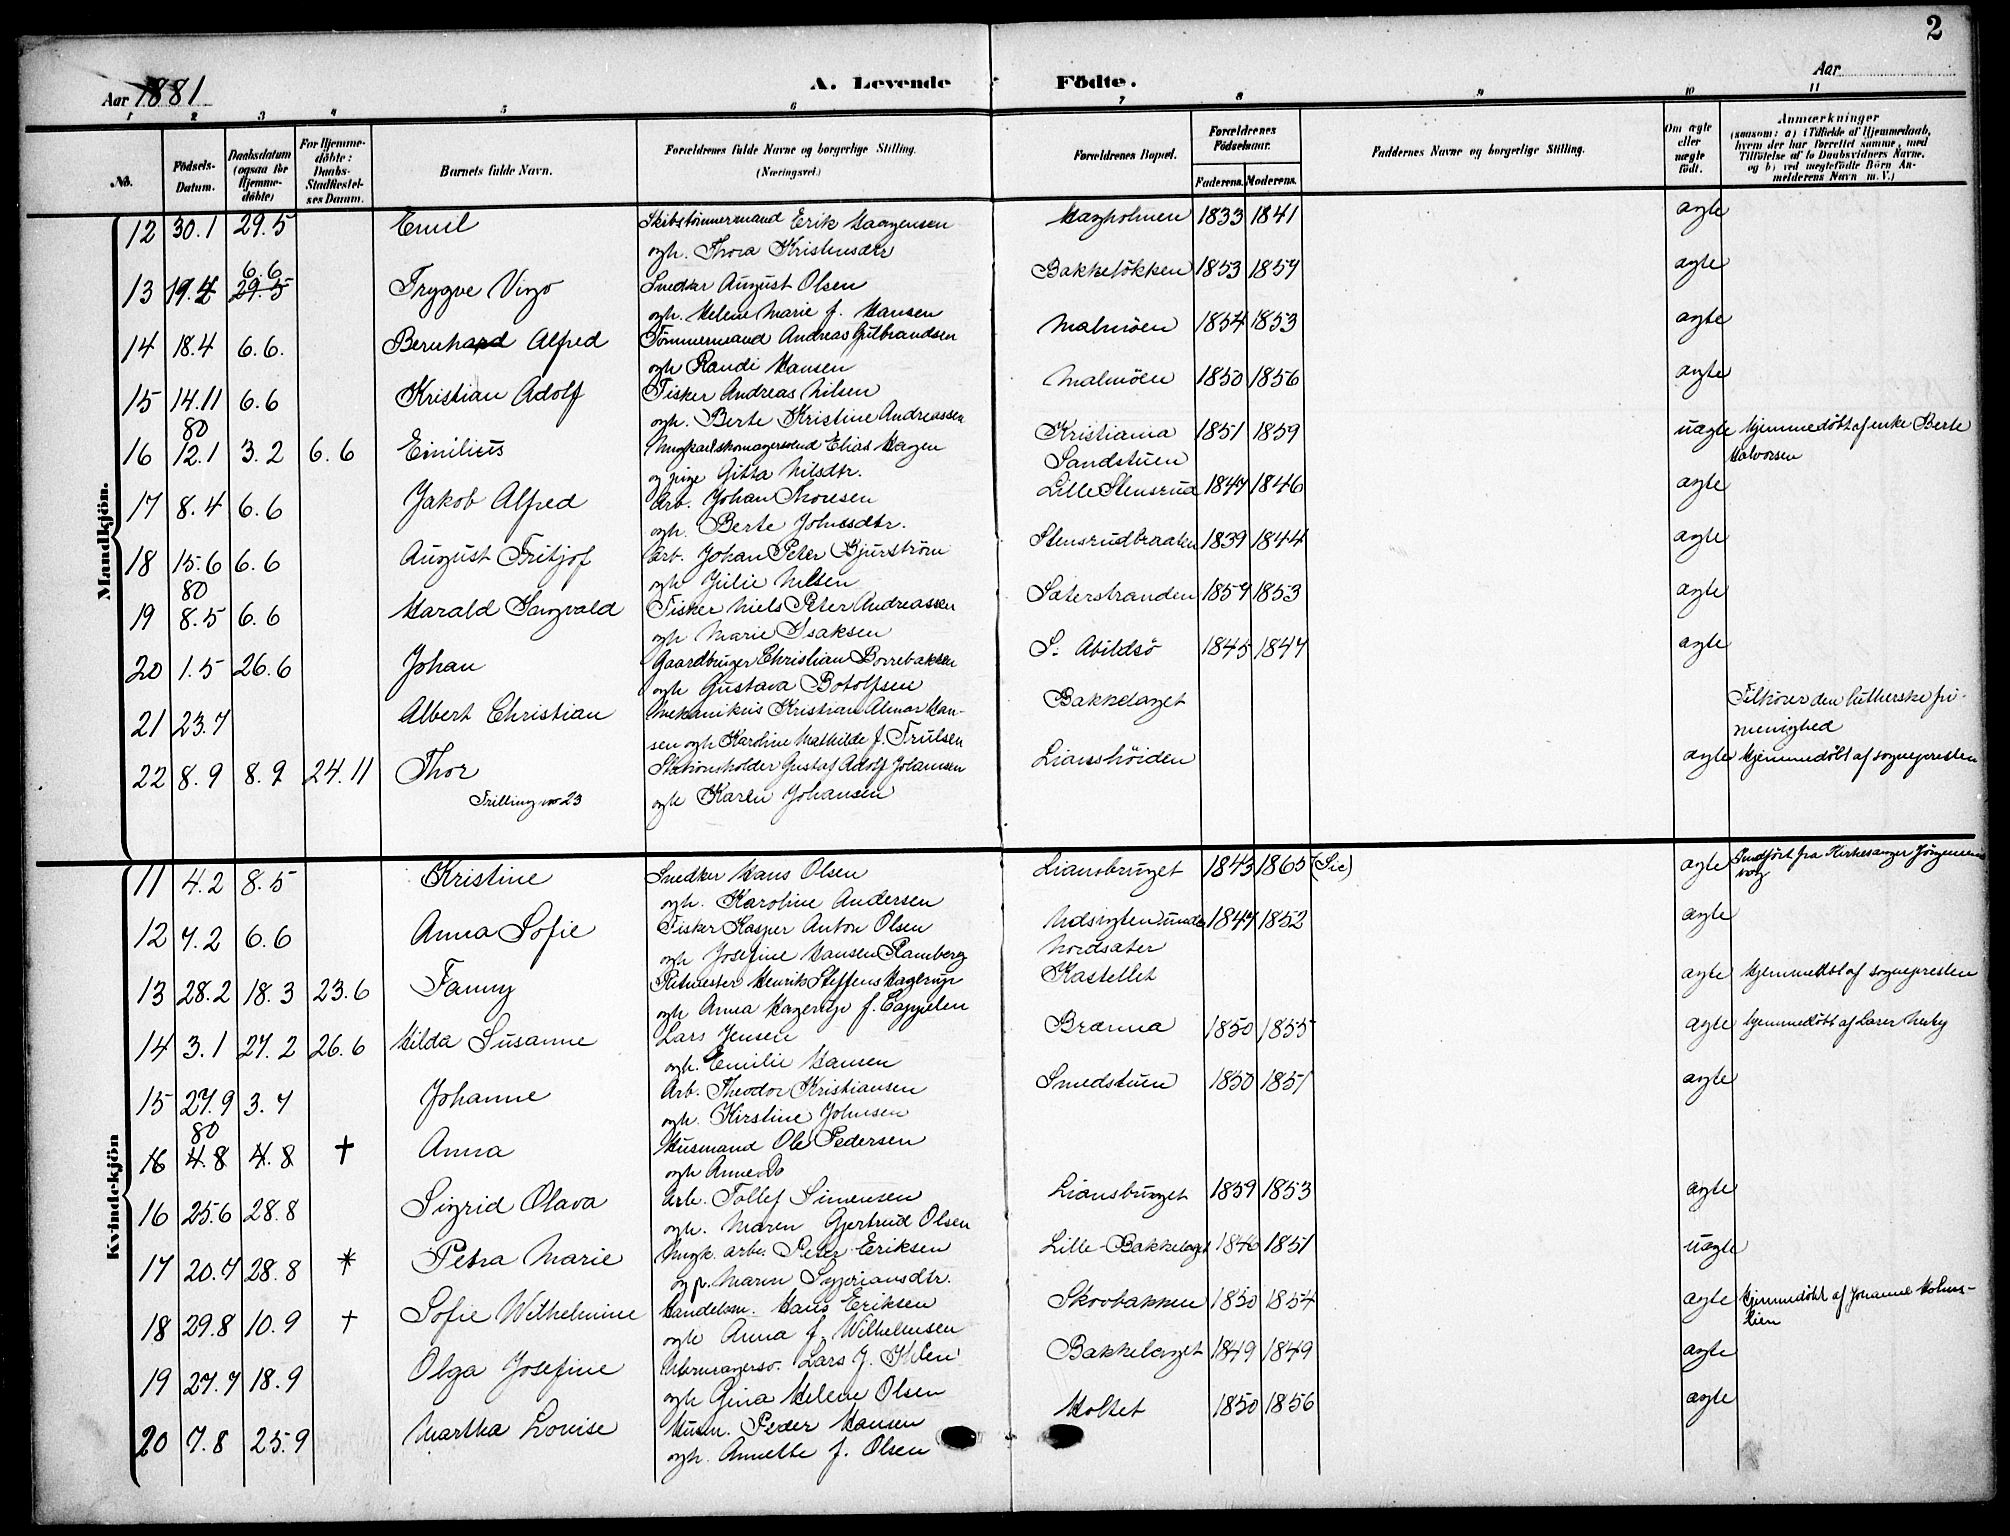 2
Aar 1881
A. Levende Födte.
Aar
1 2 3 4 5 6 7 8 9 10 11
No.
Födsels-Datum.
Daabsdatum (ogsaa for Hjemme-döbte)
For Hjemme-döbte: Daabs-Stadfæstel-ses Datum.
Barnets fulde Navn.
Forældrenes fulde Navne og borgerlige Stilling. (Næringsvei.)
Forældrenes Bopæl.
Forældrenes Födselsaar.
Faderens. Moderens.
Faddernes Navne og borgerlige Stilling.
Om ægte eller uægte födt.
Anmærkninger
(saasom: a) i Tilfælde af Hjemmedaab, hvem der har forrettet samme, med Tilföielse af to Daabsvidners Navne, og b) ved uægtefödte Börn An-melderens Navn m. V.)
Mandkjön.
12 30.1 29.5 Emil Skibstömmermand Erik Haagensen Hagholmen 1833 1841 ægte
ogh. Thora Kristensdtr
13 19.4 6.6 29.5 Trygve Vigo Snedker August Olsen Bakkelökken 1853 1857 ægte
ogh. Helene Marie f. Hansen
14 18.4 6.6. Bernhard Alfred Tömmermand Andreas Gulbrandsen Malmöen 1854 1853 ægte
ogh Randi Hansen
15 14.11 80 6.6 Kristian Adolf Fisker Andreas Nilsen Malmöen 1850 1856 ægte
ogh. Berte Kristine Andreassen
16 12.1 3.2 6.6 Emilius Ungkarlskomagersvend Elias Hagen Kristiania 1851 1859 uægte Hjemmedöbt af enke Berte
og pige Gitta Nilsdtr. Sandstuen Halvorsen
17 8.4 6.6 Jakob Alfred Arb. Johan Thoresen Lille Stensrud 1847 1846 ægte
ogh. Berte Johnsdtr.
18 15.6 80 6.6 August Fritjof Arb. Johan Peter Bjurström Stensrudbraaten 1839 1844 ægte
ogh Julie Nilsen
19 8.5 6.6 Harald Sangvald Fisker Niels Peter Andreassen Sæterstranden 1857 1853 ægte
ogh Marie Isaksen
20 1.5 26.6 Johan Gaardbruger Christian Borrebaksen S. Abildsö 1845 1847 ægte
ogh Gustava Botolfsen
21 23.7 Albert Christian Mekanikus Kristian Almar Han- Bakkelaget Tilhörer den lutherske fri-
sen ogh Karoline Mathilde f. Trulsen menighed
22 8.9 8.9 24.11 Thor Stationsholder Gustaf Adolf Johansen Lianshöiden ægte Hjemmedöbt af sognepresten
Trilling no 23 ogh Karen Johansen
Kvindekjön
11 4.2 8.5 Kristine Snedker Hans Olsen Liansbruget 1843 1865 (Sic) ægte Indfört fra Kirkesanger Jörgensens
ogh. Karoline Andersen
12 7.2 6.6 Anna Sofie Fisker Kasper Anton Olsen Udsigten under 1847 1852 ægte
ogh Josefine Hansen Ramberg Nordsæter
13 28.2 18.3 23.6 Fanny Ritmester Henrik Steffens Hagerup Kastellet ægte Hjemmedöbt af sognepresten
ogh Anna Hagerup f. Cappelen
14 3.1 27.2 26.6 Hilda Susanne Lars Jensen Brænna 1850 1855 ægte hjemmedöbt af
ogh. Emilie Hansen
15 27.9 80 3.7 Johanne Arb. Theodor Kristiansen Smedstuen 1850 1851 ægte
ogh. Kirstine Johnsen
16 4.8 4.8 † Anna Husmand Ole Pedersen
ogh Anne Do
16 25.6 28.8 Sigrid Olava Arb. Tollef Simensen Liansbruget 1859 1853 ægte
ogh. Maren Gjertrud Olsen
17 20.7 28.8 * Petra Marie Ungk. arb. Peter Eriksen Lille-Bakkelaget 1846 1851 uægte
og p. Maren Sypriansdtr.
18 29.8 10.9 † Sofie Wilhelmine Handelsm. Hans Eriksen Skovbakken 1850 1854 ægte Hjemmedöbt af Johanne Holms-
ogh Anna f. Wilhelmsen lien
19 27.7 18.9 Olga Josefine Uhrmagersv. Lars J. Ihlen Bakkelaget 1849 1849 ægte
ogh Gina Helene Olsen
20 7.8 25.9 Martha Lovise Husm. Peder Hansen Holtet 1850 1856 ægte
ogh. Annette f. Olsen